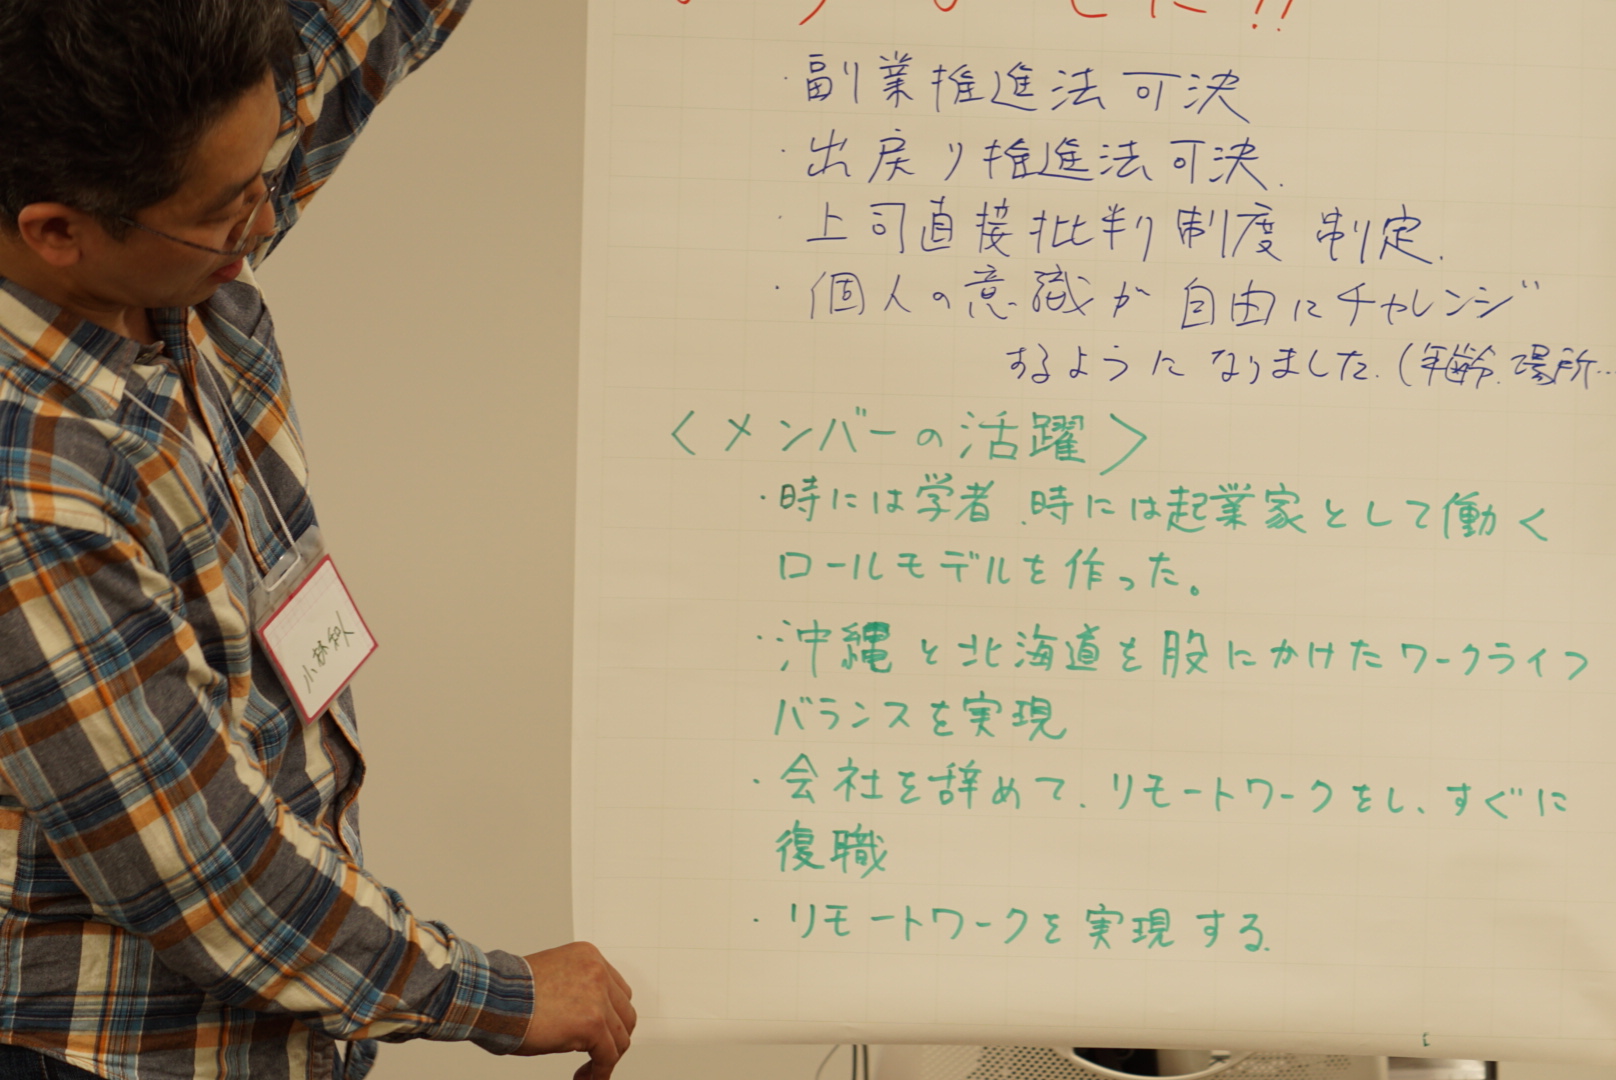 した!!
・副業推進法可決
・出戻り推進法可決.
・上司直接批判制度 制定.
・個人の意識が自由にチャレンジ
するようになりました.(年齢.場所...
<メンバーの活躍>
・時には学者、時には起業家として働く
ロールモデルを作った。
・沖縄と北海道を股にかけたワークライフ
バランスを実現
・会社を辞めて、リモートワークをし、すぐに
復職
・リモートワークを実現する.
小林知人